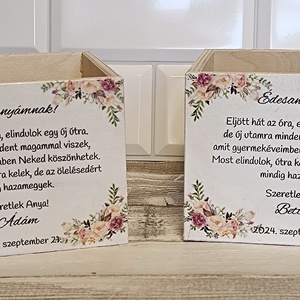 nyámnak!
, elindulok egy új útra,
dent magammal viszek,
ben Neked köszönhetek.
ra kelek, de az ölelésedért
hazamegyek.
retlek Anya!
Ádám
szeptember 21.
Édesan
Eljött hát az óra, e
de új utamra minden
amit gyermekéveimben
Most elindulok, útra ke
mindig haza
Szeretle
Bett
2024. szeptem